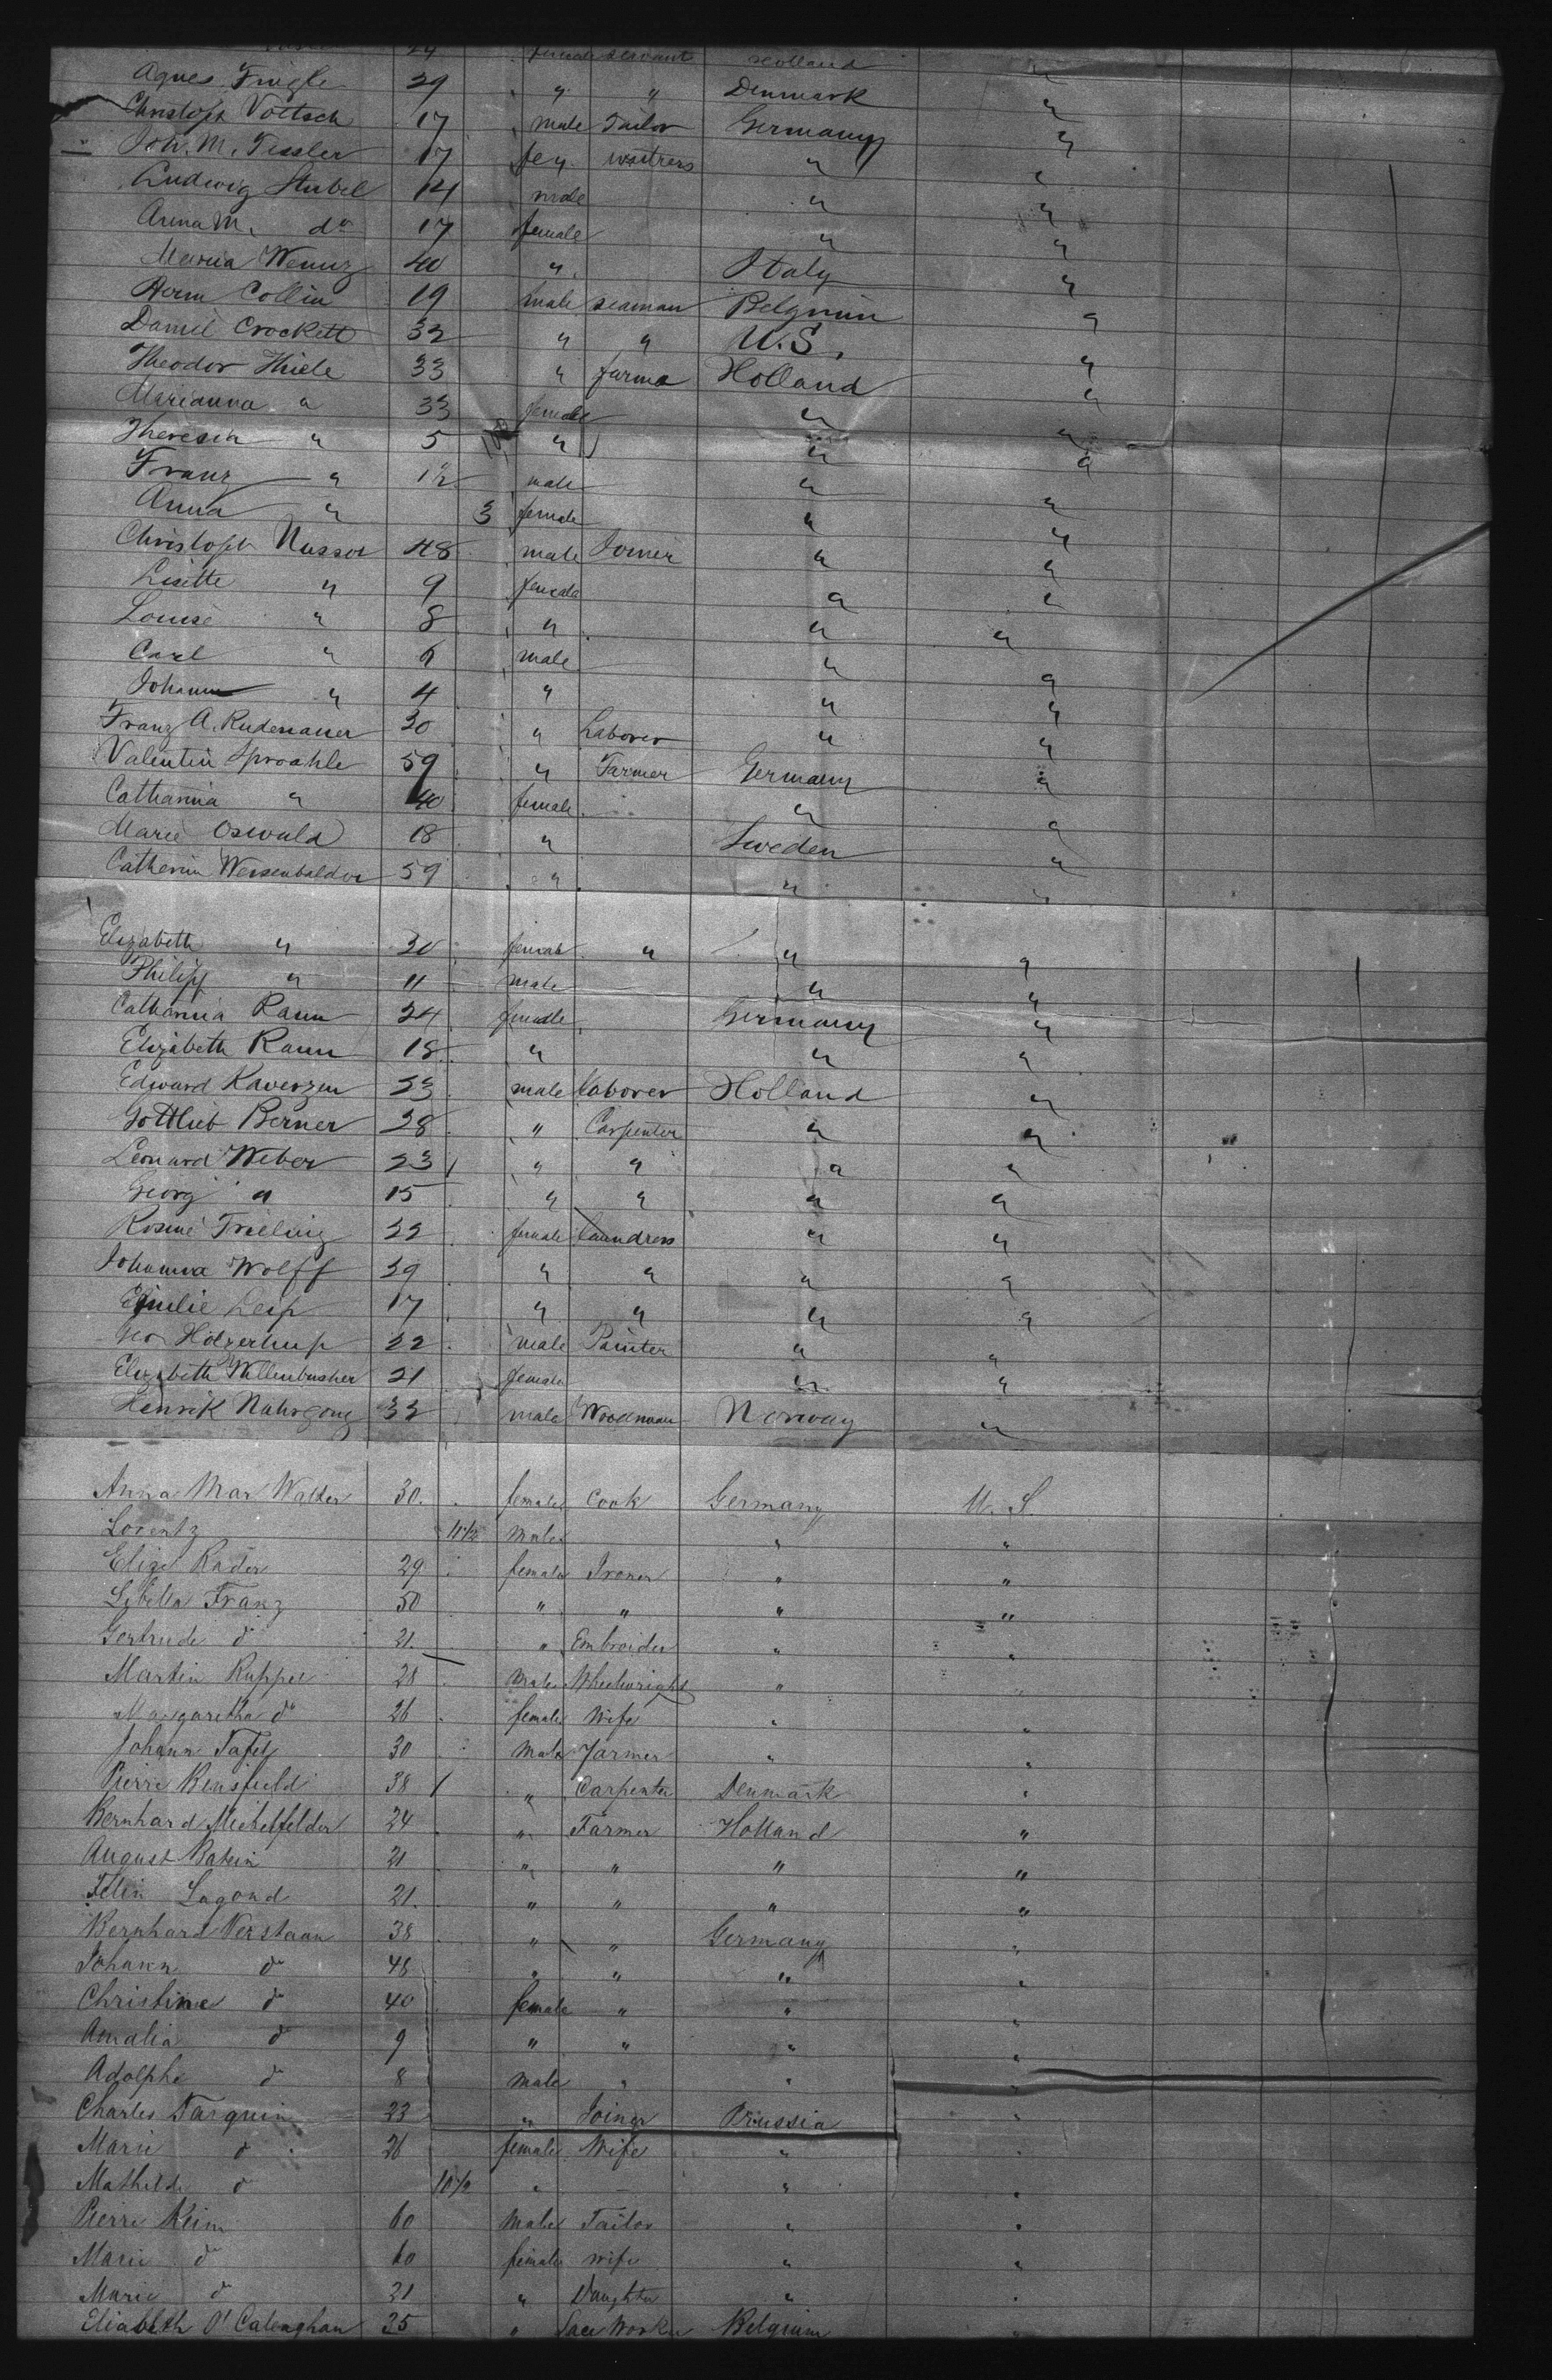 24 female servant Holland "
Agnes Fingle 29 " " Denmark "
Christoph Vottsch 17 male Tailor Germany "
Joh. M. Tessler 17 fe " waitress " "
Ludwig Stubel 14 male " "
Anna M. do 17 female " "
Maria 40 " Italy "
Herm Collin 19 male seaman Belgium "
Daniel Crockett 32 " " U.S. "
Theodor Thiele 33 " farmer Holland "
Marianna " 33 female " "
Theresia " 5 " " "
Franz " 1½ male " "
Anna " 3 female " "
Christoph Nusser 48 male Joiner " "
Lisette " 9 female " "
Louise " 8 " " "
Carl " 6 male " "
Johann " 4 " " "
Franz A. Rudenauer 30 " Laborer " "
Valentin Sproahle 59 " Farmer Germany "
Catharina " 40 female " "
Marie Oswald 18 " Sweden "
Catherin Weissenbalder 59 " " "
Elizabeth " 30 female " " "
Philipp " 11 male " "
Catharina Raun 24 female Germany "
Elizabeth Raun 18 " " "
Edward Kaverzen 23 male Laborer Holland "
Gottlieb Berner 28 " Carpenter " "
Leonard Weber 23 " " " "
Georg " 15 " " " "
Rosine Trieling 22 female Laundress " "
Johanna Wolff 29 " " " "
Emilie Leip 17 " " " "
Geo Holzerhup 22 male Painter " "
Elizabeth Willenbusher 21 female " "
Henrik Nahrgang 33 male Woodman Norway "
Anna Mar Walter 30 female Cook Germany U.S.
Lorentz 11/12 male " "
Elige Rader 29 female Ironer " "
Sibilla Franz 50 " " " "
Gertrude do 21 " Embroider " "
Martin Ruppel 28 male Wheelwright " "
Margaretha do 26 female Wife " "
Johann Tafel 30 male Farmer " "
Pierre Bensfield 38 " Carpenter Denmark "
Bernhard Michelfelder 24 " Farmer Holland "
August Batein 21 " " " "
Felin Lagond 21 " " " "
Bernhard Verstaan 38 " " Germany "
Johann do 48 " " " "
Christine do 40 female " " "
Amalia do 9 " " " "
Adolphe do 8 male " " "
Charles Tarquin 23 " Joiner Prussia "
Marie do 26 female Wife " "
Mathilde do 10/12 " " "
Pierre Keim 60 male Tailor " "
Marie do 60 female wife " "
Marie do 21 " Daughter " "
Eliabeth O'Calenghan 35 " Lace Worker Belgium "